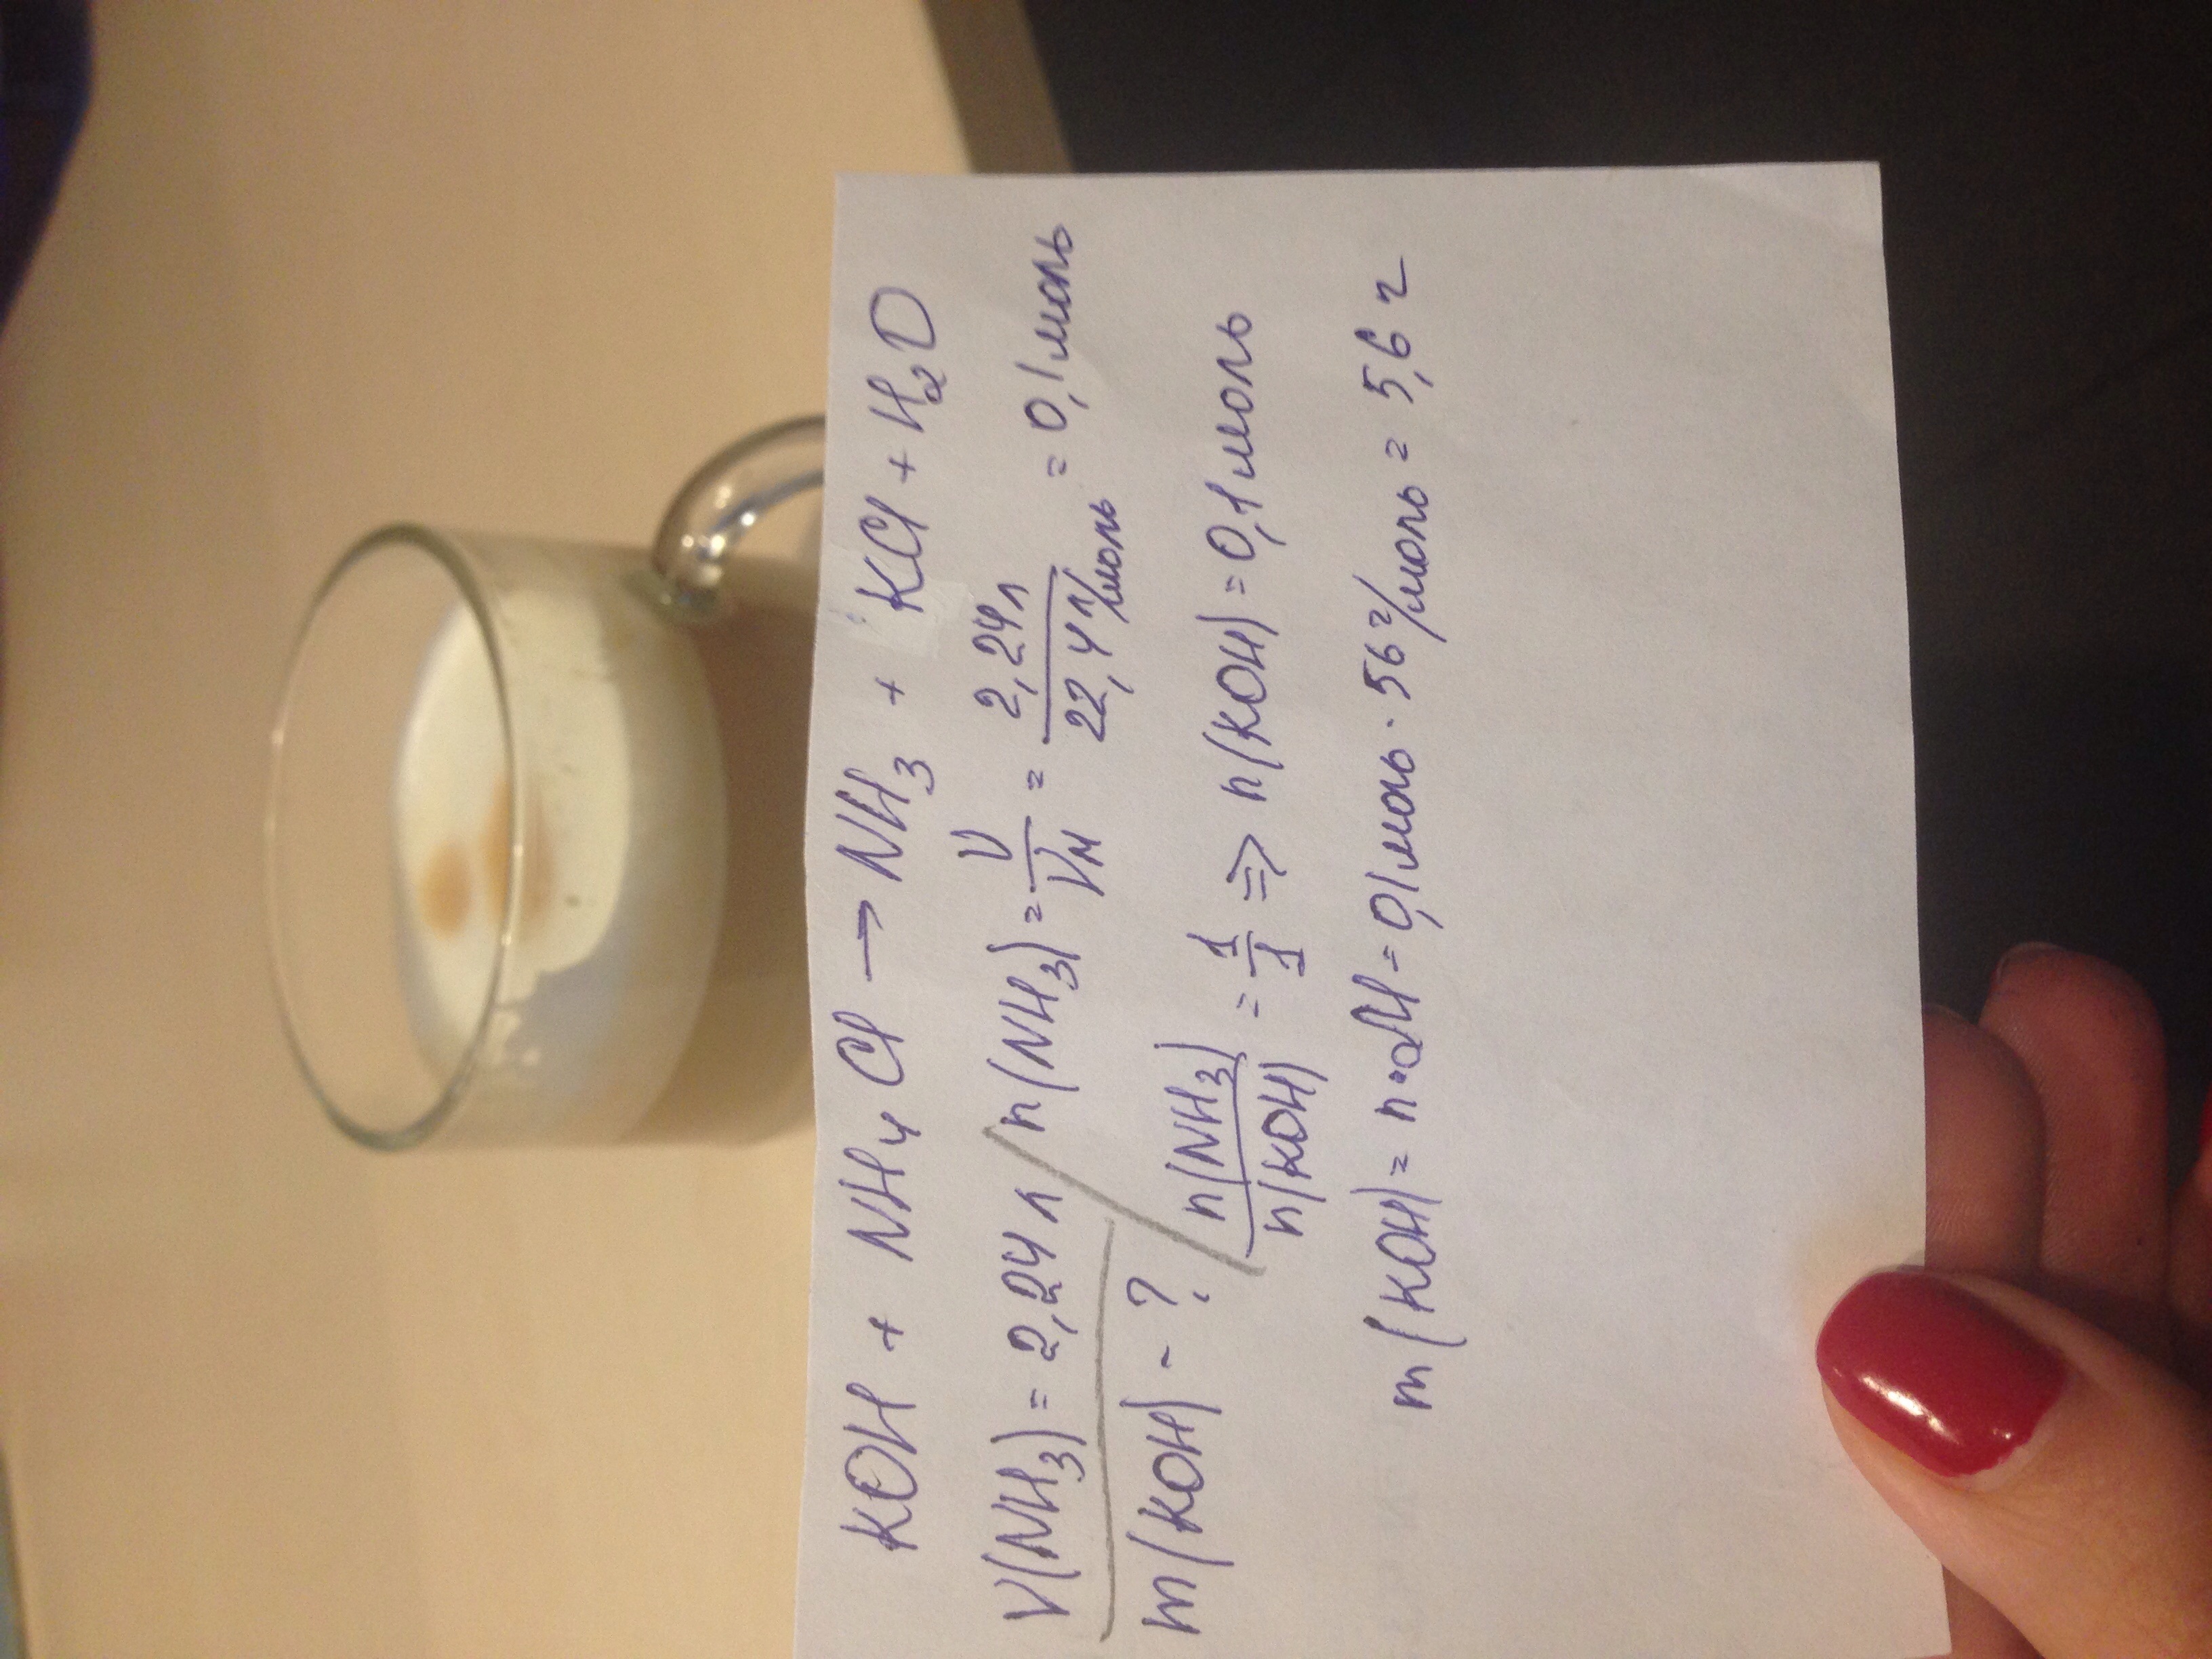 KOH + NH₄Cl → NH₃ + KCl + H₂O
V(NH₃) = 2,24 л
m(KOH) - ?
n(NH₃) = V/Vм = 2,24 л/22,4 л/моль = 0,1 моль
n(NH₃)/n(KOH) = 1/1 => n(KOH) = 0,1 моль
m(KOH) = n·M = 0,1 моль · 56 г/моль = 5,6 г